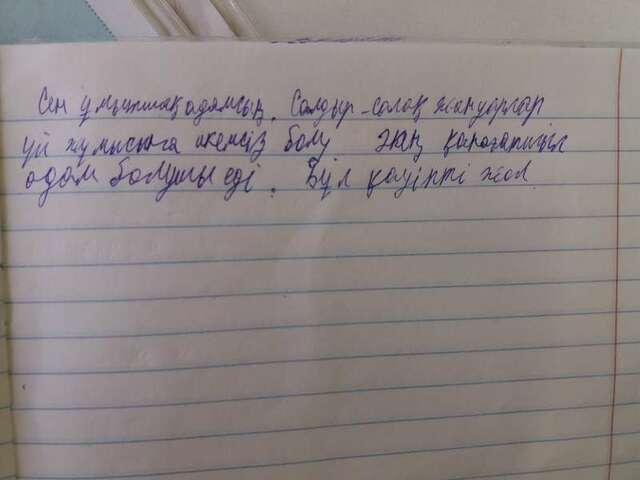 Сен ұмытшақ адамсың. Салдыр-салақ жануарлар
үй жұмысына икемсіз болу жан қанағатшыл
адам болушы еді. Бұл қауіпті жол.